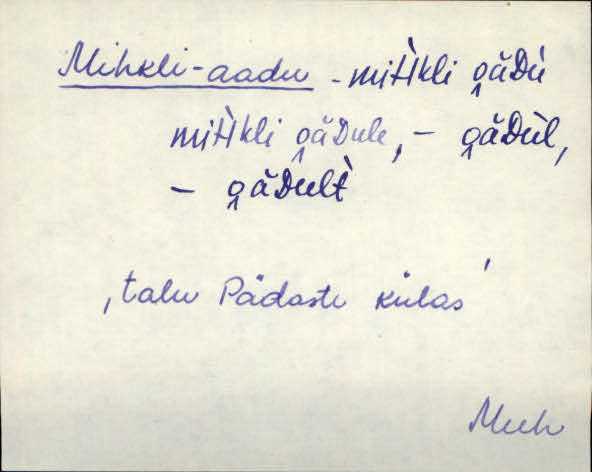 Mihkli-aadu - miH̀kli o̭äDù
miH̀kli o̭äDule, - o̭äDùl,
- o̭äDult̀
‚talu Pädaste külas’
Muh